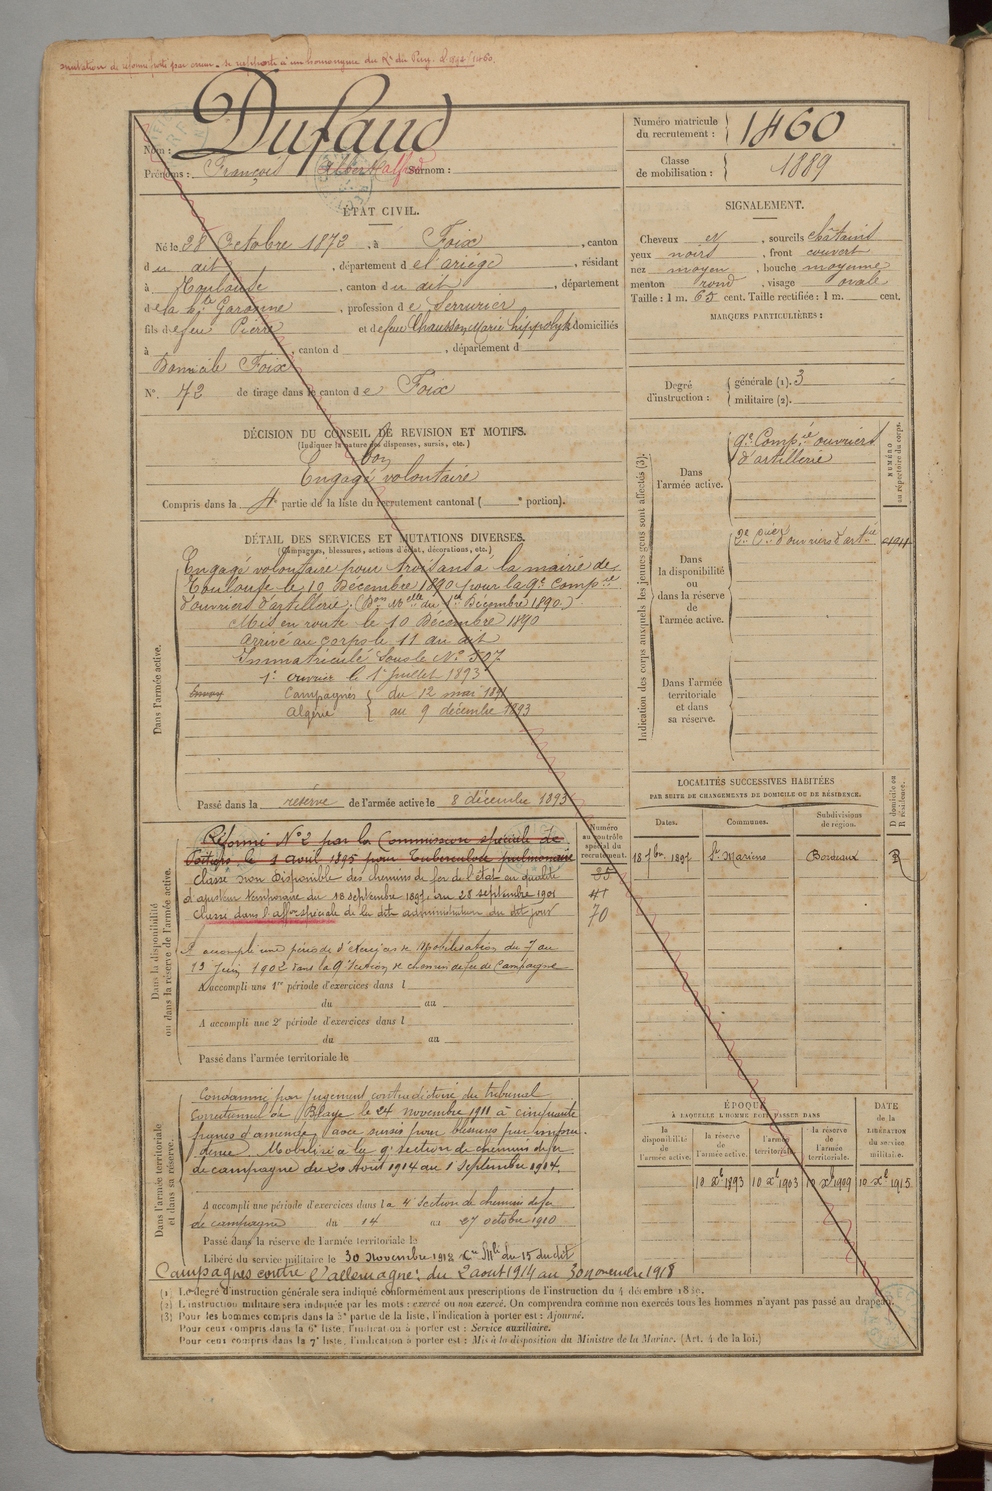 mutation de réforme portée par erreur - se rapporte à un homonyme du Rt du Puy. Cl. 1892 / 1460.
Nom : Dufaud
Prénoms : François Albert Alfred Surnom :
Numéro matricule du recrutement : 1460
Classe de mobilisation : 1889
ÉTAT CIVIL.
Né le 28 Octobre 1872, à Foix, canton
du dit, département de l'ariége, résidant
à Toulouse, canton du dit, département
de la hte Garonne, profession de Serrurier
fils de feu Pierre et de feue Chausson Marie hippolyte domiciliés
à , canton d , département d
Domicile Foix
No. 72 de tirage dans le canton de Foix
SIGNALEMENT.
Cheveux et, sourcils châtains
yeux noirs, front couvert
nez moyen, bouche moyenne
menton rond, visage ovale
Taille : 1 m. 65 cent. Taille rectifiée : 1 m. cent.
MARQUES PARTICULIÈRES :
Degré d'instruction : générale (1). 3
militaire (2).
DÉCISION DU CONSEIL DE REVISION ET MOTIFS.
(Indiquer la nature des dispenses, sursis, etc.)
Bon
Engagé volontaire
Compris dans la 4e partie de la liste du recrutement cantonal ( e portion).
DÉTAIL DES SERVICES ET MUTATIONS DIVERSES.
(Campagnes, blessures, actions d'éclat, décorations, etc.)
Dans l'armée active.
Engagé volontaire pour trois ans à la mairie de
Toulouse le 10 Décembre 1890 pour la 9e Compie
d'ouvriers d'artillerie. (Don Mlle du 1er Décembre 1890.)
Mis en route le 10 Décembre 1890
Arrivé au corps le 11 au dit
Immatriculé sous le No 507
1er ouvrier le 1er juillet 1893
Campagnes { du 12 mai 1891
Algérie { au 9 décembre 1893
Passé dans la réserve de l'armée active le 8 décembre 1893
Indication des corps auxquels les jeunes gens sont affectés (3).
NUMÉRO au répertoire du corps.
Dans l'armée active.
9e Compie ouvriers
d'artillerie
Dans la disponibilité ou dans la réserve de l'armée active.
d'ouvriers d'artie
Dans l'armée territoriale et dans sa réserve.
LOCALITÉS SUCCESSIVES HABITÉES
PAR SUITE DE CHANGEMENTS DE DOMICILE OU DE RÉSIDENCE.
D domicile ou R résidence.
Dates. Communes. Subdivisions de région.
18 7bre 1897 St Mariens Bordeaux R
Dans la disponibilité ou dans la réserve de l'armée active.
Numéro au contrôle spécial du recrutement.
Réformé No 2 par la Commission spéciale de
Poitiers le 1 avril 1895 pour Tuberculose pulmonaire
Classé non Disponible des chemins de fer de l'état en qualité
d'ajusteur temporaire du 18 septembre 1897 au 28 septembre 1901
Classé dans l'affon spéciale de la dite administration du dit jour
70
A accompli une période d'exercices de Mobilisation du 7 au
13 Juin 1902 dans la 9e Section de chemins de fer de Campagne
A accompli une 1re période d'exercices dans l
du au
A accompli une 2e période d'exercices dans l
du au
Passé dans l'armée territoriale le
Dans l'armée territoriale et dans sa réserve.
Condamné par jugement contradictoire du tribunal
Correctionnel de Blaye le 24 novembre 1911 à cinquante
francs d'amende, avec sursis pour blessures par impru-
dence. Mobilisé à la 9e section de chemins de fer
de campagne du 20 Août 1914 au 1 Septembre 1914.
A accompli une période d'exercices dans la 4e section de chemins de fer
de campagne du 14 au 27 octobre 1910
Passé dans la réserve de l'armée territoriale le
Libéré du service militaire le 30 Novembre 1918 du 15 du dit
Campagnes contre l'allemagne : du 2 août 1914 au 30 novembre 1918
ÉPOQUE
À LAQUELLE L'HOMME DOIT PASSER DANS
DATE de la LIBÉRATION du service militaire.
la disponibilité de l'armée active. la réserve de l'armée active. l'armée territoriale. la réserve de l'armée territoriale.
10 Xbre 1893 10 Xbre 1903 10 Xbre 1909 10 Xbre 1915
(1) Le degré d'instruction générale sera indiqué conformément aux prescriptions de l'instruction du 4 décembre 1889.
(2) L'instruction militaire sera indiquée par les mots : exercé ou non exercé. On comprendra comme non exercés tous les hommes n'ayant pas passé au drapeau.
(3) Pour les hommes compris dans la 5e partie de la liste, l'indication à porter est : Ajourné.
Pour ceux compris dans la 6e liste, l'indication à porter est : Service auxiliaire.
Pour ceux compris dans la 7e liste, l'indication à porter est : Mis à la disposition du Ministre de la Marine. (Art. 4 de la loi.)